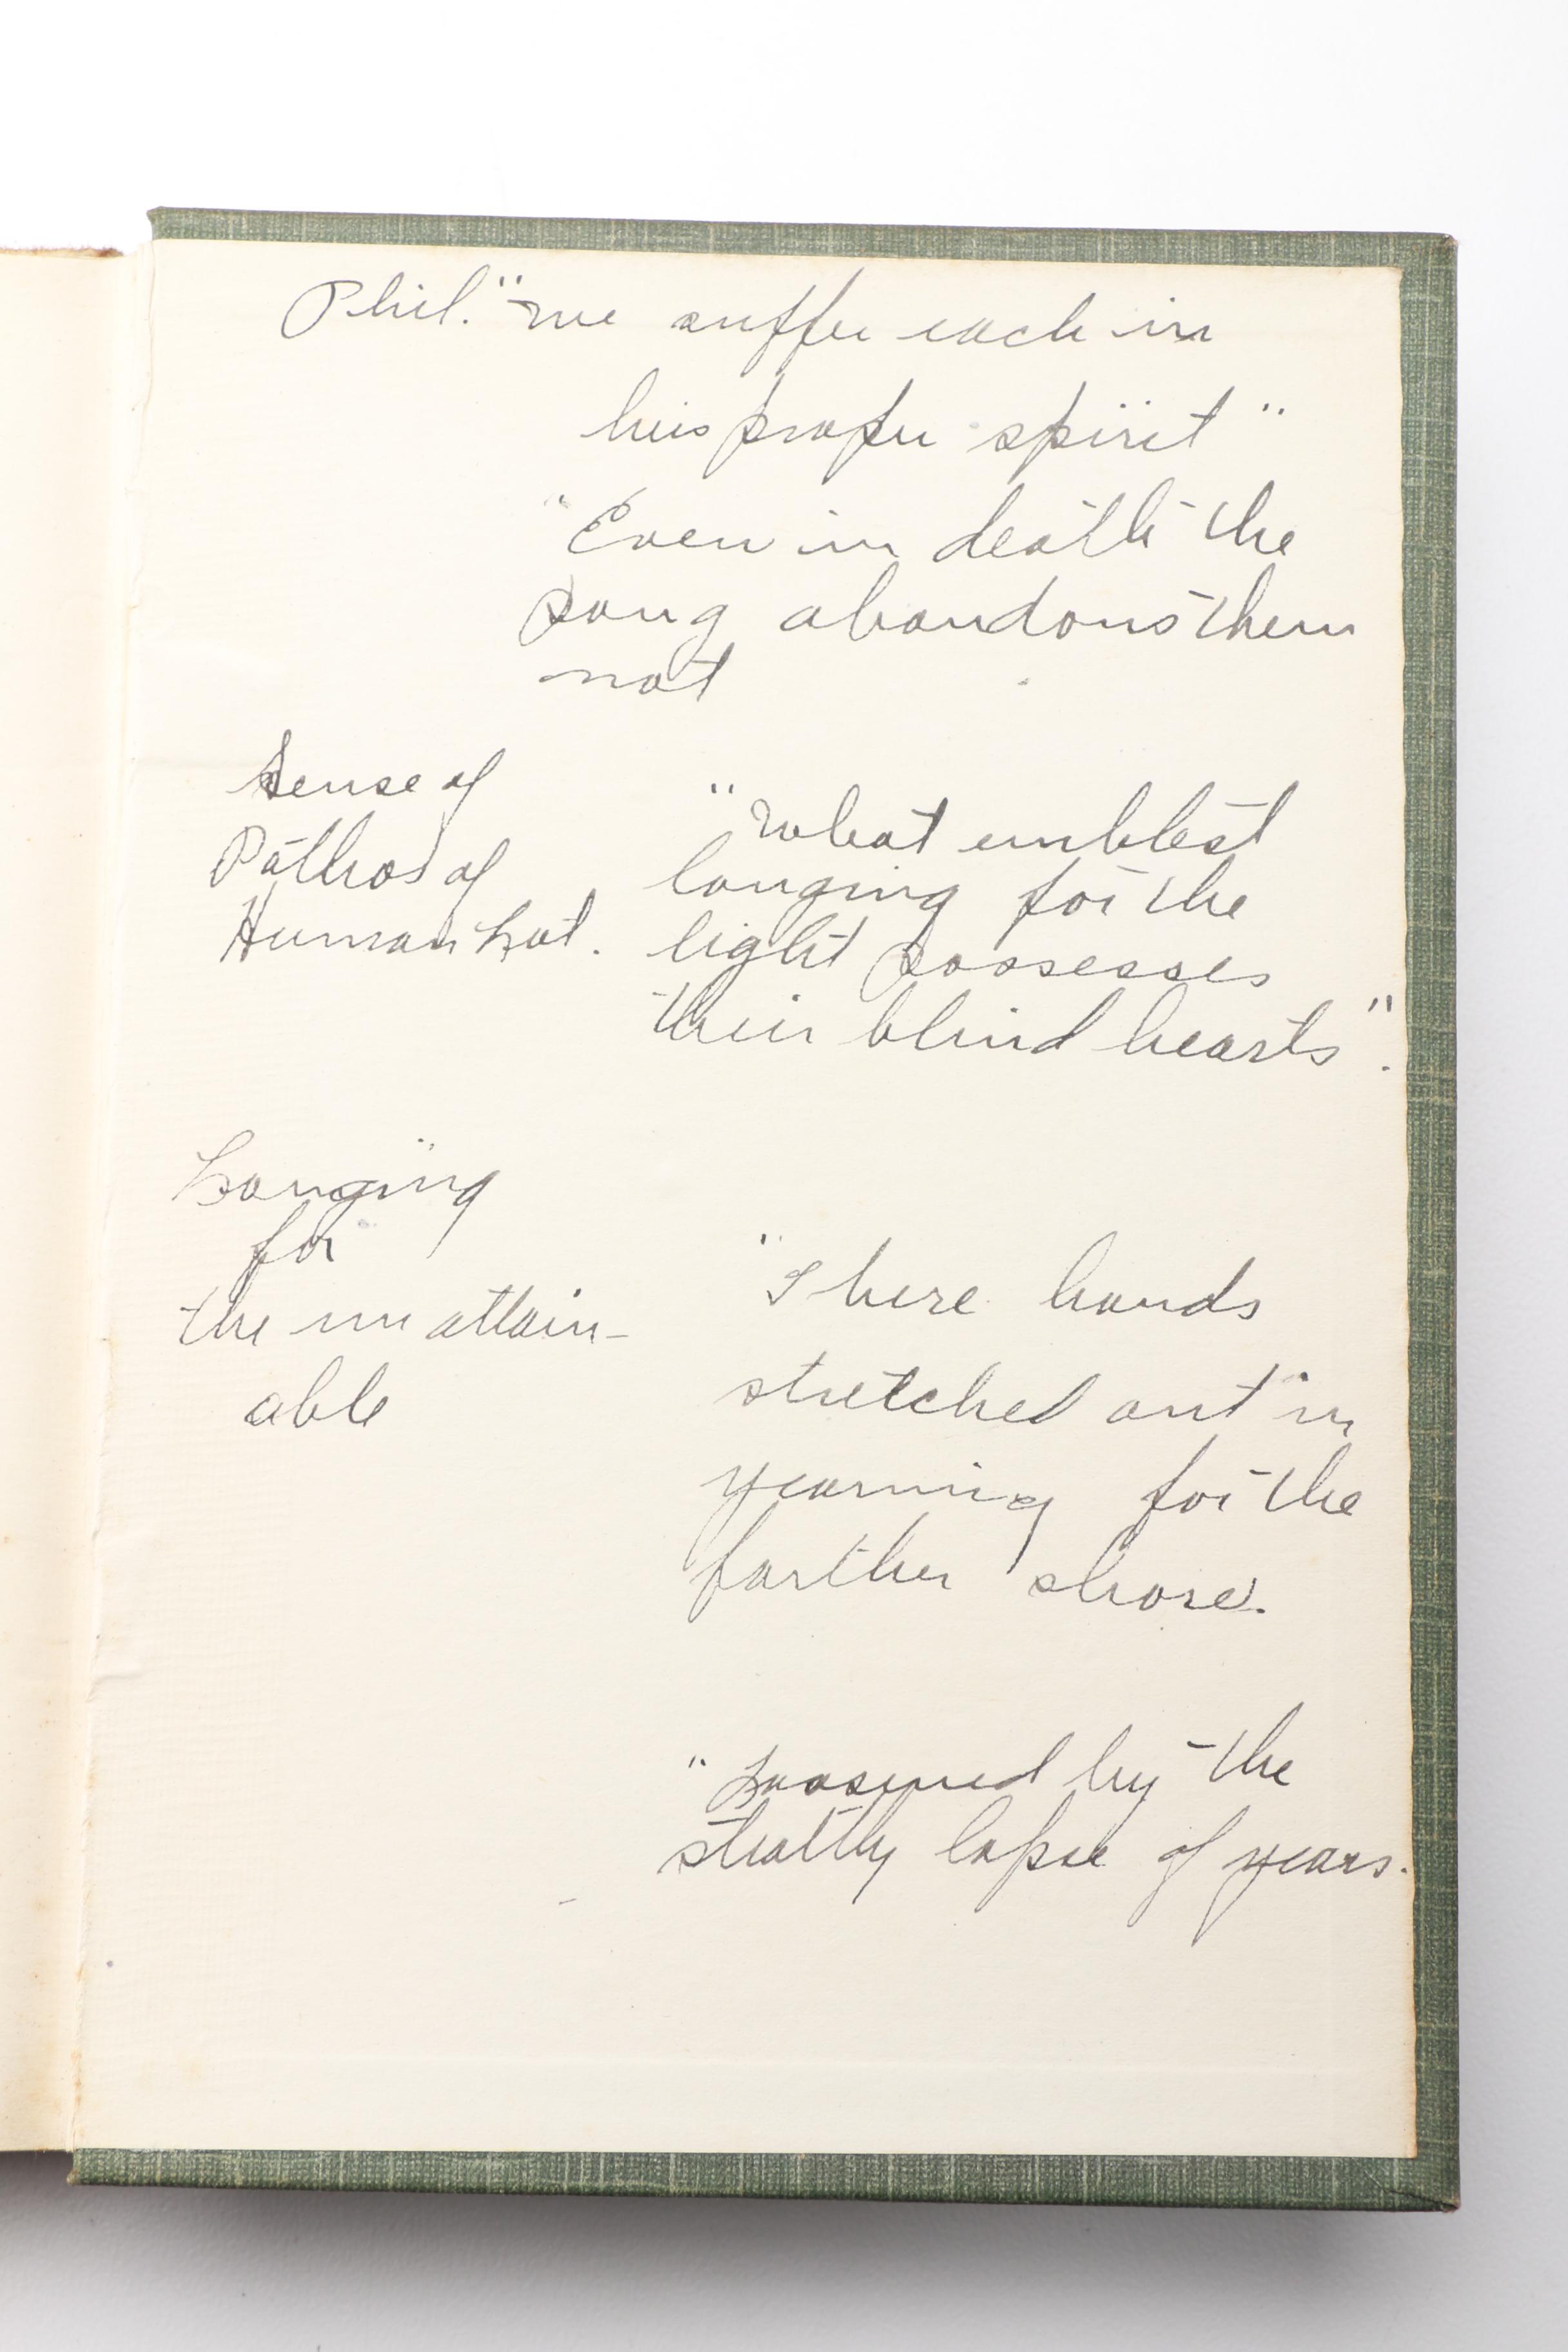 Phil. "we suffer each in
his proper spirit"
"Even in death the
song abandons them
not
Sense of
Pathos of
Human Lot.
"What unblest
longing for the
light possesses
their blind hearts".
Longing
for
the unattain-
able
"There hands
stretched out in
yearning for the
farther shore.
"Loosened by the
lapse of years.